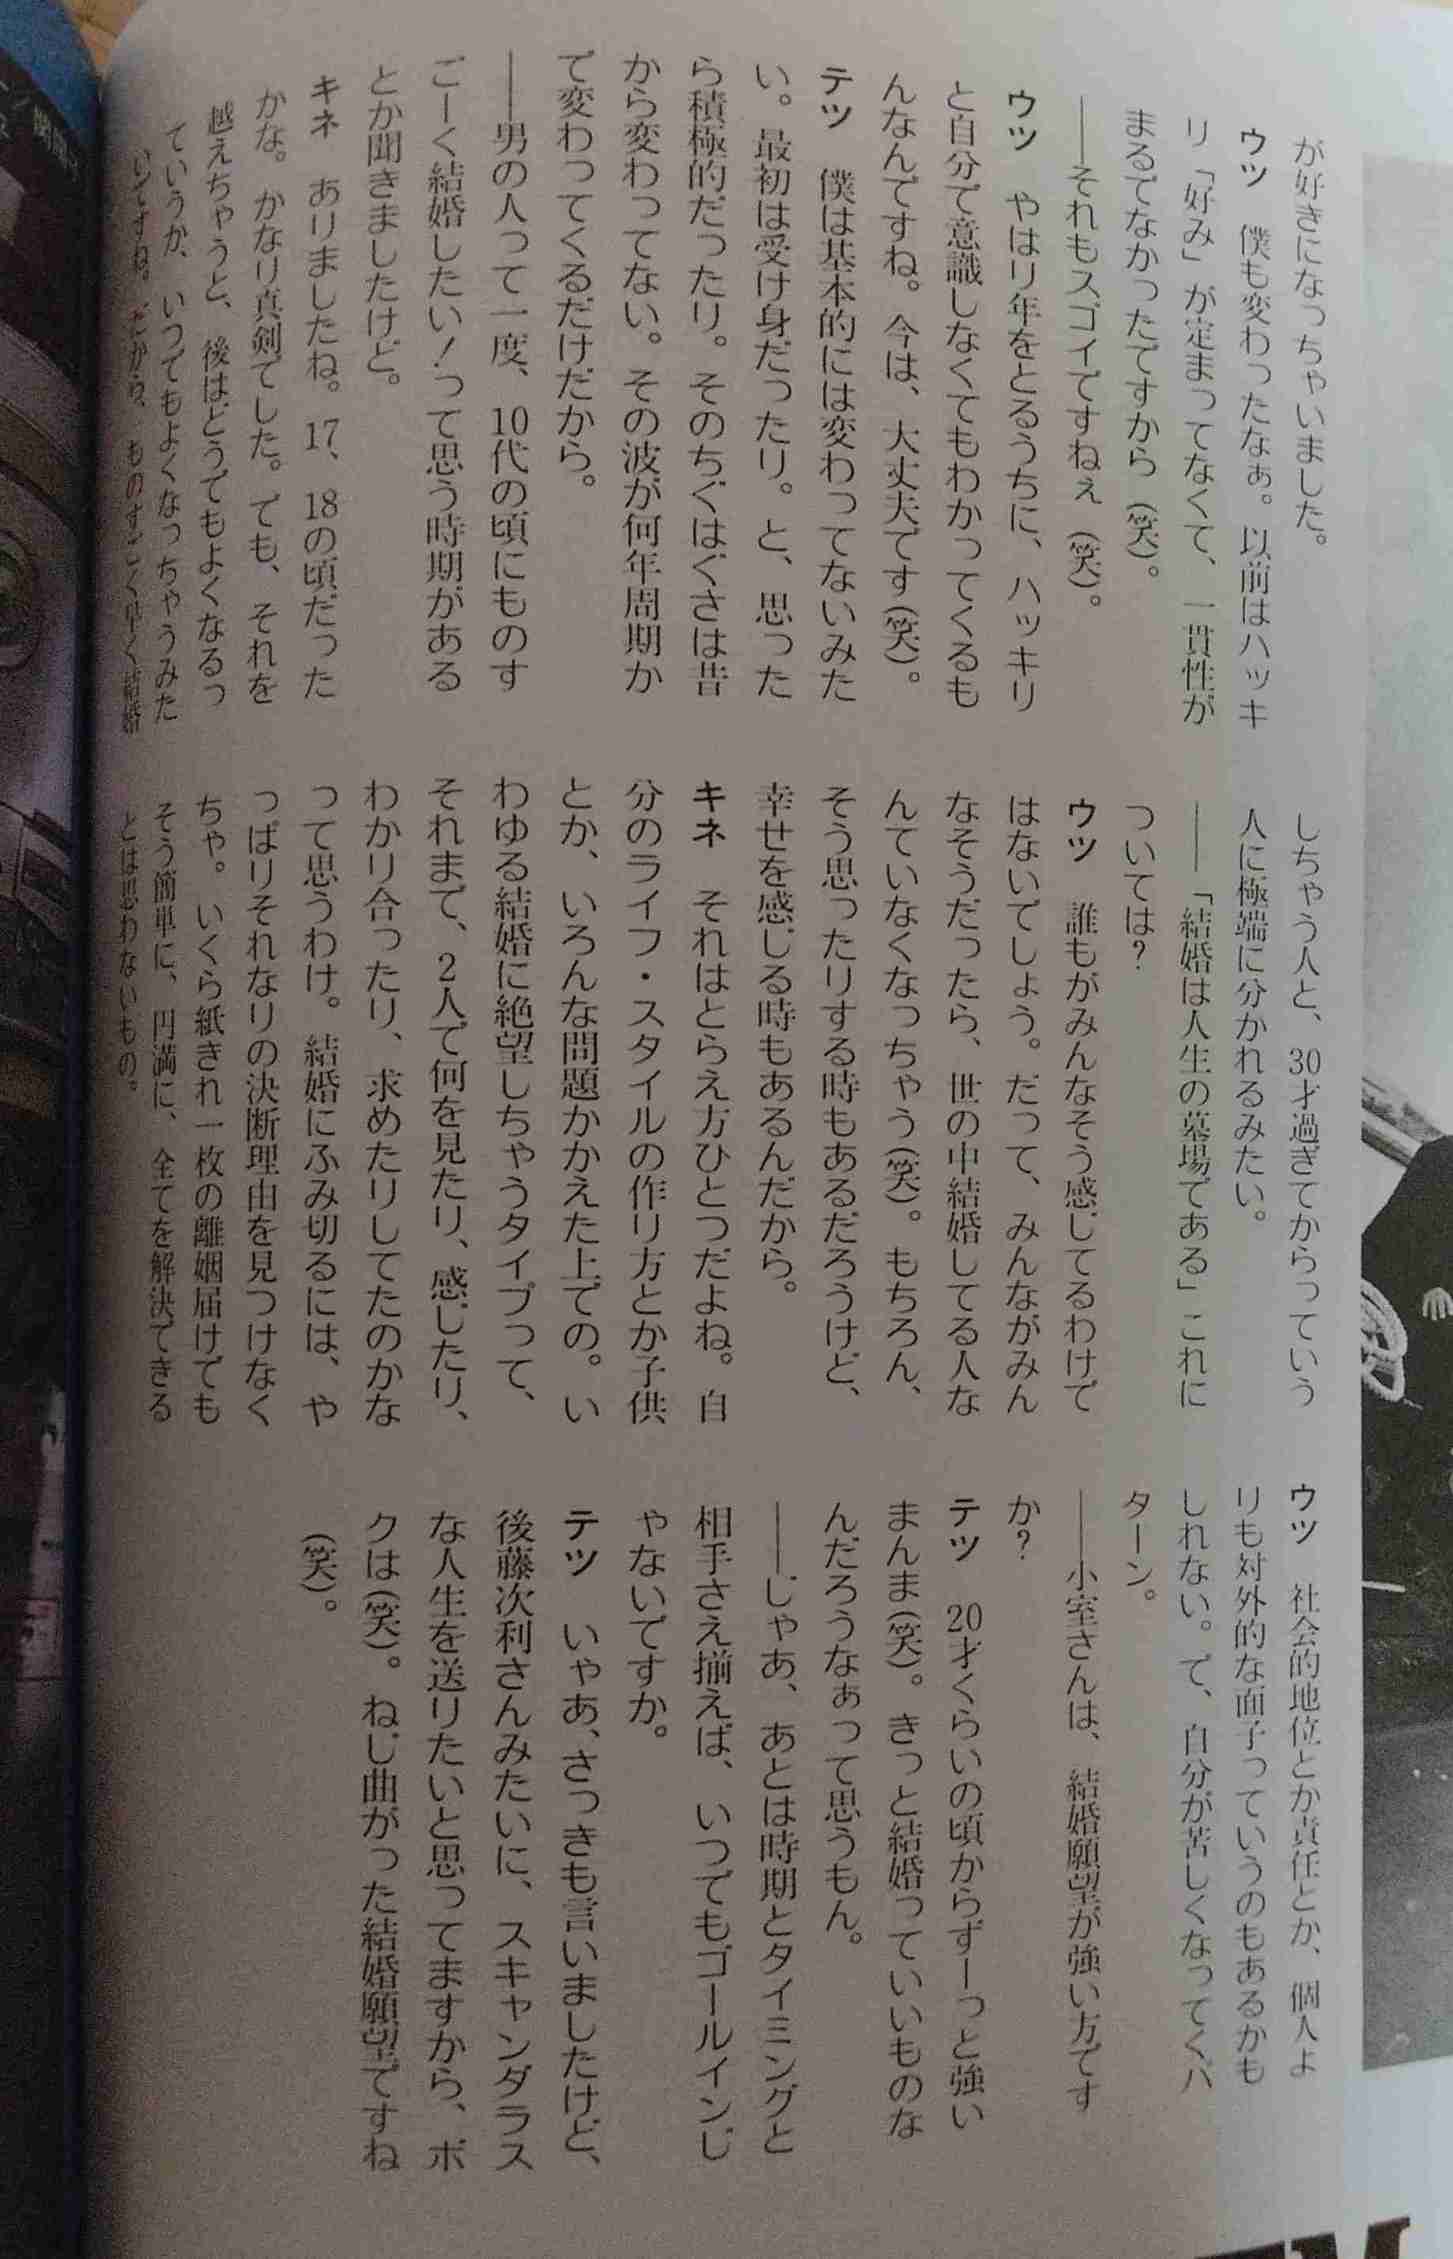 が好きになっちゃいました。
ウツ　僕も変わったなぁ。以前はハッキ
リ「好み」が定まってなくて、一貫性が
まるでなかったですから（笑）。
――それもスゴイですねぇ（笑）。
ウツ　やはり年をとるうちに、ハッキリ
と自分で意識しなくてもわかってくるも
んなんですね。今は、大丈夫です（笑）。
テツ　僕は基本的には変わってないみた
い。最初は受け身だったり。と、思った
ら積極的だったり。そのちぐはぐさは昔
から変わってない。その波が何年周期か
で変わってくるだけだから。
――男の人って一度、10代の頃にものす
ごーく結婚したい！って思う時期がある
とか聞きましたけど。
キネ　ありましたね。17、18の頃だった
かな。かなり真剣でした。でも、それを
越えちゃうと、後はどうでもよくなるっ
ていうか、いつでもよくなっちゃうみた
いですね。だから、ものすごく早く結婚
しちゃう人と、30才過ぎてからっていう
人に極端に分かれるみたい。
――「結婚は人生の墓場である」これに
ついては？
ウツ　誰もがみんなそう感じてるわけで
はないでしょう。だって、みんながみん
なそうだったら、世の中結婚してる人な
んていなくなっちゃう（笑）。もちろん、
そう思ったりする時もあるだろうけど、
幸せを感じる時もあるんだから。
キネ　それはとらえ方ひとつだよね。自
分のライフ・スタイルの作り方とか子供
とか、いろんな問題かかえた上での。い
わゆる結婚に絶望しちゃうタイプって、
それまで、2人で何を見たり、感じたり、
わかり合ったり、求めたりしてたのかな
って思うわけ。結婚にふみ切るには、や
っぱりそれなりの決断理由を見つけなく
ちゃ。いくら紙きれ一枚の離婚届けでも
そう簡単に、円満に、全てを解決できる
とは思わないもの。
ウツ　社会的地位とか責任とか、個人よ
りも対外的な面子っていうのもあるかも
しれない。で、自分が苦しくなってくパ
ターン。
――小室さんは、結婚願望が強い方です
か？
テツ　20才くらいの頃からずーっと強い
まんま（笑）。きっと結婚っていいものな
んだろうなぁって思うもん。
――じゃあ、あとは時期とタイミングと
相手さえ揃えば、いつでもゴールインじ
ゃないですか。
テツ　いやあ、さっきも言いましたけど、
後藤次利さんみたいに、スキャンダラス
な人生を送りたいと思ってますから、ボ
クは（笑）。ねじ曲がった結婚願望ですね
（笑）。